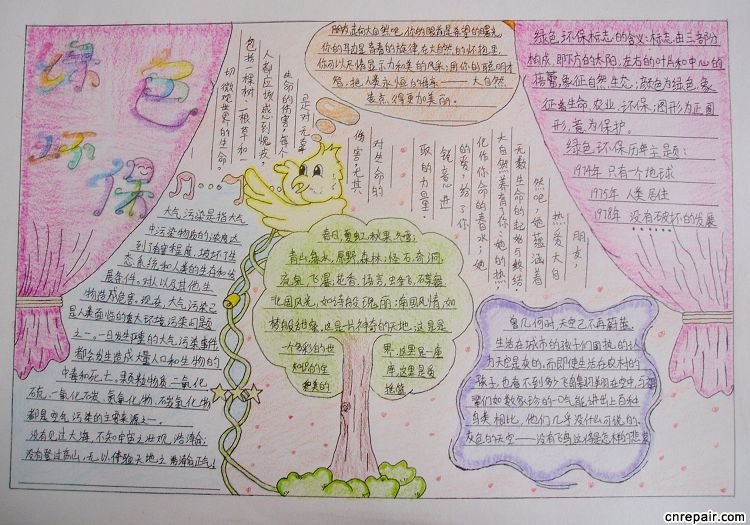 绿色
环保
朋友,走向大自然吧,你的眼前是希望的曙光,
你的耳边是青春的旋律,在大自然的怀抱里,
你可以尽情显示力和美的风采,用你的聪明才
智,把人类永恒的母亲——大自然
装点得更加美丽。
绿色环保标志的含义:标志由三部分
构成,即下方的太阳,左右的叶片和中心的
蓓蕾,象征自然生态;颜色为绿色,象
征着生命,农业,环保;图形为正圆
形,意为保护。
绿色环保历年主题:
1974年 只有一个地球
1975年 人类居住
1978年 没有破坏的发展
朋友,
热爱大自
然吧,她蕴涵着
无数生命的起始与终结,
大自然养育了你,她的热,
化作你生命的春水;她
的爱,给了你
锐意进
取的力量。
对生命的
伤害,尤其
是对无辜
生命的伤害,每个
人都应该感到愧疚,
包括一棵树、一根草和一
切微观世界的生命。
大气污染是指大气
中污染物质的浓度达
到了有害程度,破坏了生
态系统和人类的生存和发
展条件,对人以及其他生
物造成危害。现在,大气污染已
是人类面临的重大环境污染问题
之一。一旦发生严重的大气污染事件
都会发生造成大量人口和生物的
中毒和死亡。
硫、一氧化碳、氮氧化物、碳氢化物
都是空气污染的主要来源之一。
没有见过大海,不知宇宙之壮观、浩瀚;
没有登过高山,无以体验天地之
春日,夏虹,秋果,冬雪;
青山,绿水,原野,森林;怪石,奇洞,
流泉,飞瀑,花香,语言,虫争飞
北国风光,如诗般瑰丽;南国风情,如
梦般甜蜜,这是一片神奇的天地,这里是
一个多彩的世界,这里是一座
知识的宝库,这里是爱
和美的摇篮
曾几何时,天空已不再蔚蓝,
生活在城市的孩子们固执的以
为天空是灰的,而即使生活在农村的
孩子,也看不到多少飞鸟翱翔在空中,与
辈们如数家珍的一口气能讲出上百种
鸟类相比,他们几乎没什么可说的。
灰色的天空——没有飞鸟,这将是怎样的悲哀
cnrepair.com